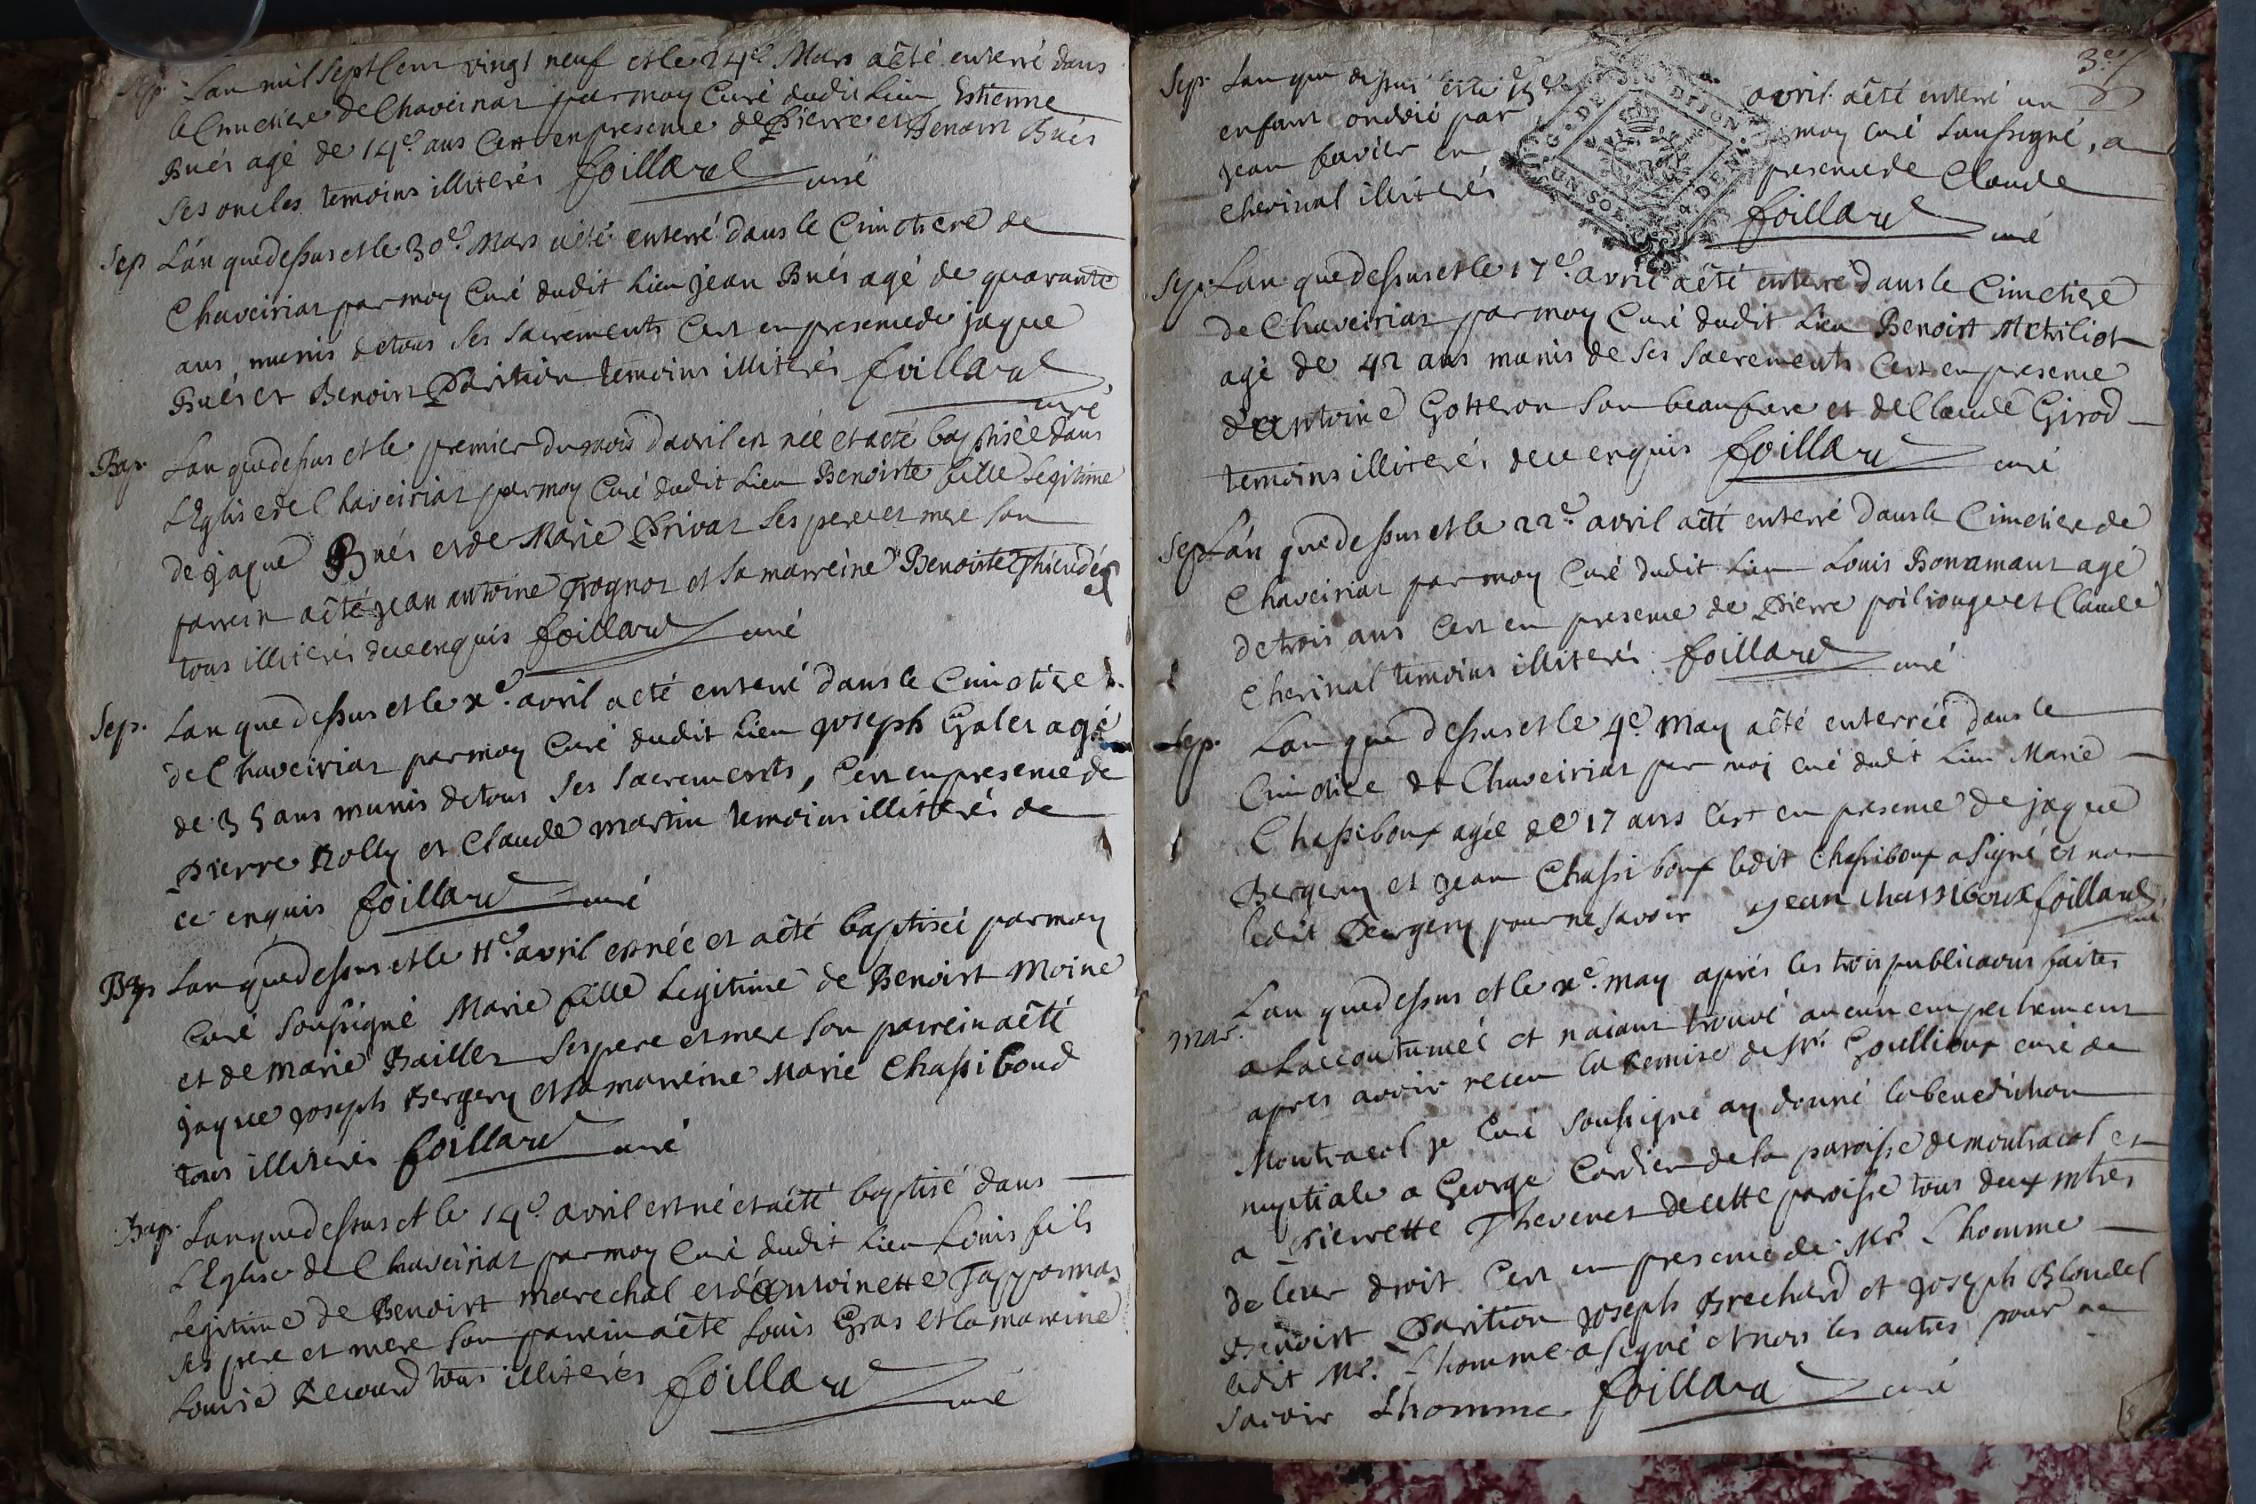 Sep. Lan mil sept cent vingt neuf et le 24e. Mars a êté enterré dans
le Cimetiere de Chaveiriat par moy Curé dudit Lieu Estienne
Bués agé de 14e. ans Cest en presence de Pierre et Benoist Bués
ses oncles temoins illiterés foillard curé
Sep L'an que dessus et le 30e. Mars a êté enterré dans le Cimetiere de
Chaveiriat par moy Curé dudit Lieu Jean Bués agé de quarante
ans, munis de tous ses sacrements Cest en presence de jaque
Bués et Benoist Parition temoins illiterés foillard
curé
Bap. Lan que dessus et le premier du mois d'avril est née et a eté baptisée dans
L'Eglise de Chaveiriat par moy Curé dudit Lieu Benoiste fille Legitime
de jaque Bués et de Marie Privat ses pere et mere son
parrein a êté jean antoine Prognoz et sa marreine Benoiste
tous illiterés de ce enquis foillard curé
Sep. Lan que dessus et le xe. avril a eté enterré dans le Cimetiere
de Chaveiriat par moy Curé dudit Lieu joseph Galet agé
de 35 ans munis de tous ses sacrements, Cest en presence de
Pierre Rolly et Claude martin temoins illiterés de
ce enquis foillard curé
Bap Lan que dessus et le 11e. avril est née et a êté baptisée par moy
Curé soussigné Marie fille Legitime de Benoist Moine
et de marie Baillet ses pere et mere son parrein a êté
jaque joseph Bergery et sa marreine Marie Chassiboud
tous illiterés foillard curé
Bap. Lan que dessus et le 14e. avril est né et a êté baptisé dans
L'Eglise de Chaveiriat par moy Curé dudit Lieu Louis fils
Legitime de Benoist marechal et d'antoinette Tapponnas
ses pere et mere son parrein a êté Louis Gras et la marreine
Louise tous illiterés foillard curé
Sep. Lan que dessus et le avril a êté enterré un
enfant ondoié par moy curé soussigné, a
jean en presence de Claude
Cherinal illiterés foillard curé
GEN. DE DIJON
UN SOL
Sep. Lan que dessus et le 17e. avril a êté enterré dans le Cimetiere
de Chaveiriat par moy Curé dudit Lieu Benoist
agé de 42 ans munis de ses sacrements Cest en presence
d'antoine Gotteron son beaufrere et de Claude Girod
temoins illiterés de ce enquis foillard curé
Sep L'an que dessus et le 22e. avril a êté enterré dans le Cimetiere de
Chaveiriat par moy Curé dudit Lieu Louis Bonamant agé
de trois ans Cest en presence de Pierre poilrouge et Claude
Cherinal temoins illiterés foillard curé
Sep. Lan que dessus et le 4e. May a êté enterrée dans le
Cimetiere de Chaveiriat par moi curé dudit Lieu Marie
Chassiboux agée de 17 ans Cest en presence de jaque
Bergery et Jean Chassiboux ledit Chassiboux a signé et non
ledit Bergery pour ne savoir Jean chassiboux foillard
curé
Mar. Lan que dessus et le xe. may aprés les trois publications faites
a Laccoutumée et n'aiant trouvé aucun empechement
apres avoir receu la remise de Mr. Goullioux curé de
Montracol je Curé soussigné ay donné la benediction
nuptiale a George Cordier de la paroisse de montracol et
a Pierrette Thevenet de cette paroisse tous deux mtres
de leur droit Cest en presence de Mr. Lhomme
Benoist Parition joseph Brechard et joseph Blondel
ledit Mr. Lhomme a signé et non les autres pour ne
savoir Lhomme foillard curé